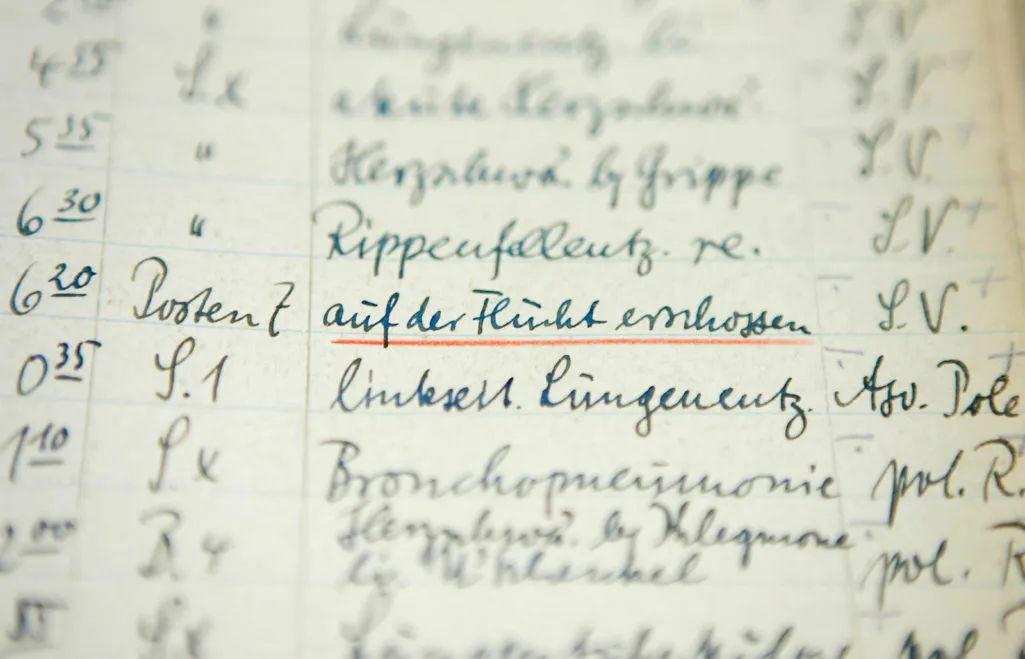 4 55 S. x akute Herzschwä. S.V.
5 35 " Herzschwä. by Grippe S.V.
6 30 " Rippenfellentz. re. S.V.
6 20 Posten 7 auf der Flucht erschossen S.V.
0 35 S.1 linkseit. Lungenentz. Asv. Pole
1 10 S x Bronchopneumonie pol. R.
2 00 B 4 Herzschwä. by Phlegmone pol. R